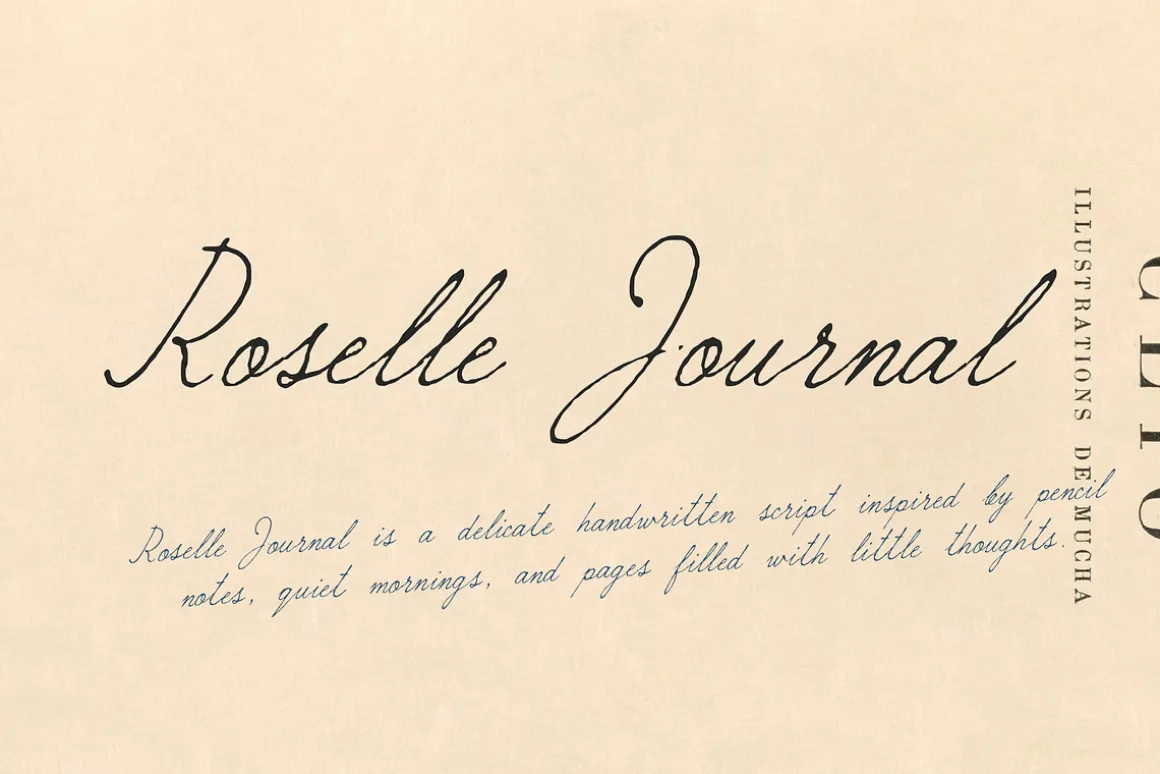 Roselle Journal
Roselle Journal is a delicate handwritten script inspired by pencil
notes, quiet mornings, and pages filled with little thoughts.
ILLUSTRATIONS DE MUCHA